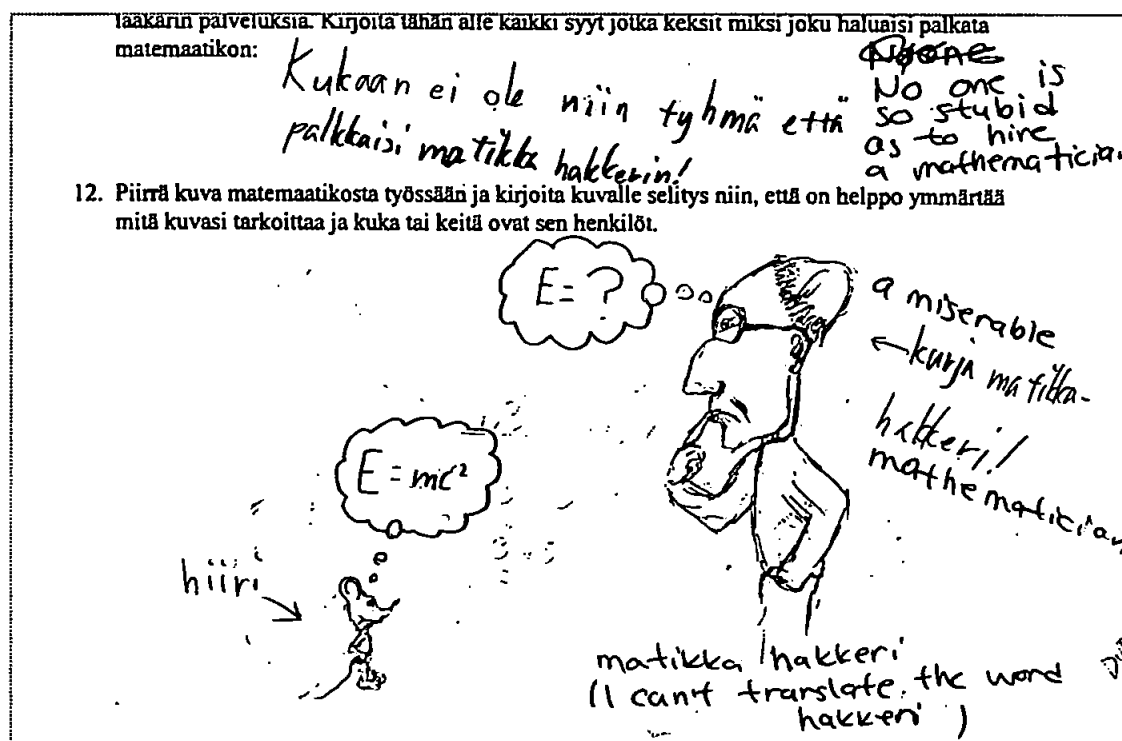 lääkärin palveluksia. Kirjoita tähän alle kaikki syyt jotka keksit miksi joku haluaisi palkata
matemaatikon:
Kukaan ei ole niin tyhmä että
palkkaisi matikka hakkerin!
No one is
so stubid
as to hire
a mathematician
12. Piirrä kuva matemaatikosta työssään ja kirjoita kuvalle selitys niin, että on helppo ymmärtää
mitä kuvasi tarkoittaa ja kuka tai keitä ovat sen henkilöt.
E = ?
a miserable
←kurja matikka-
hakkeri!
mathematician
E = mc²
hiiri
matikka hakkeri
(I can't translate the word
hakkeri)